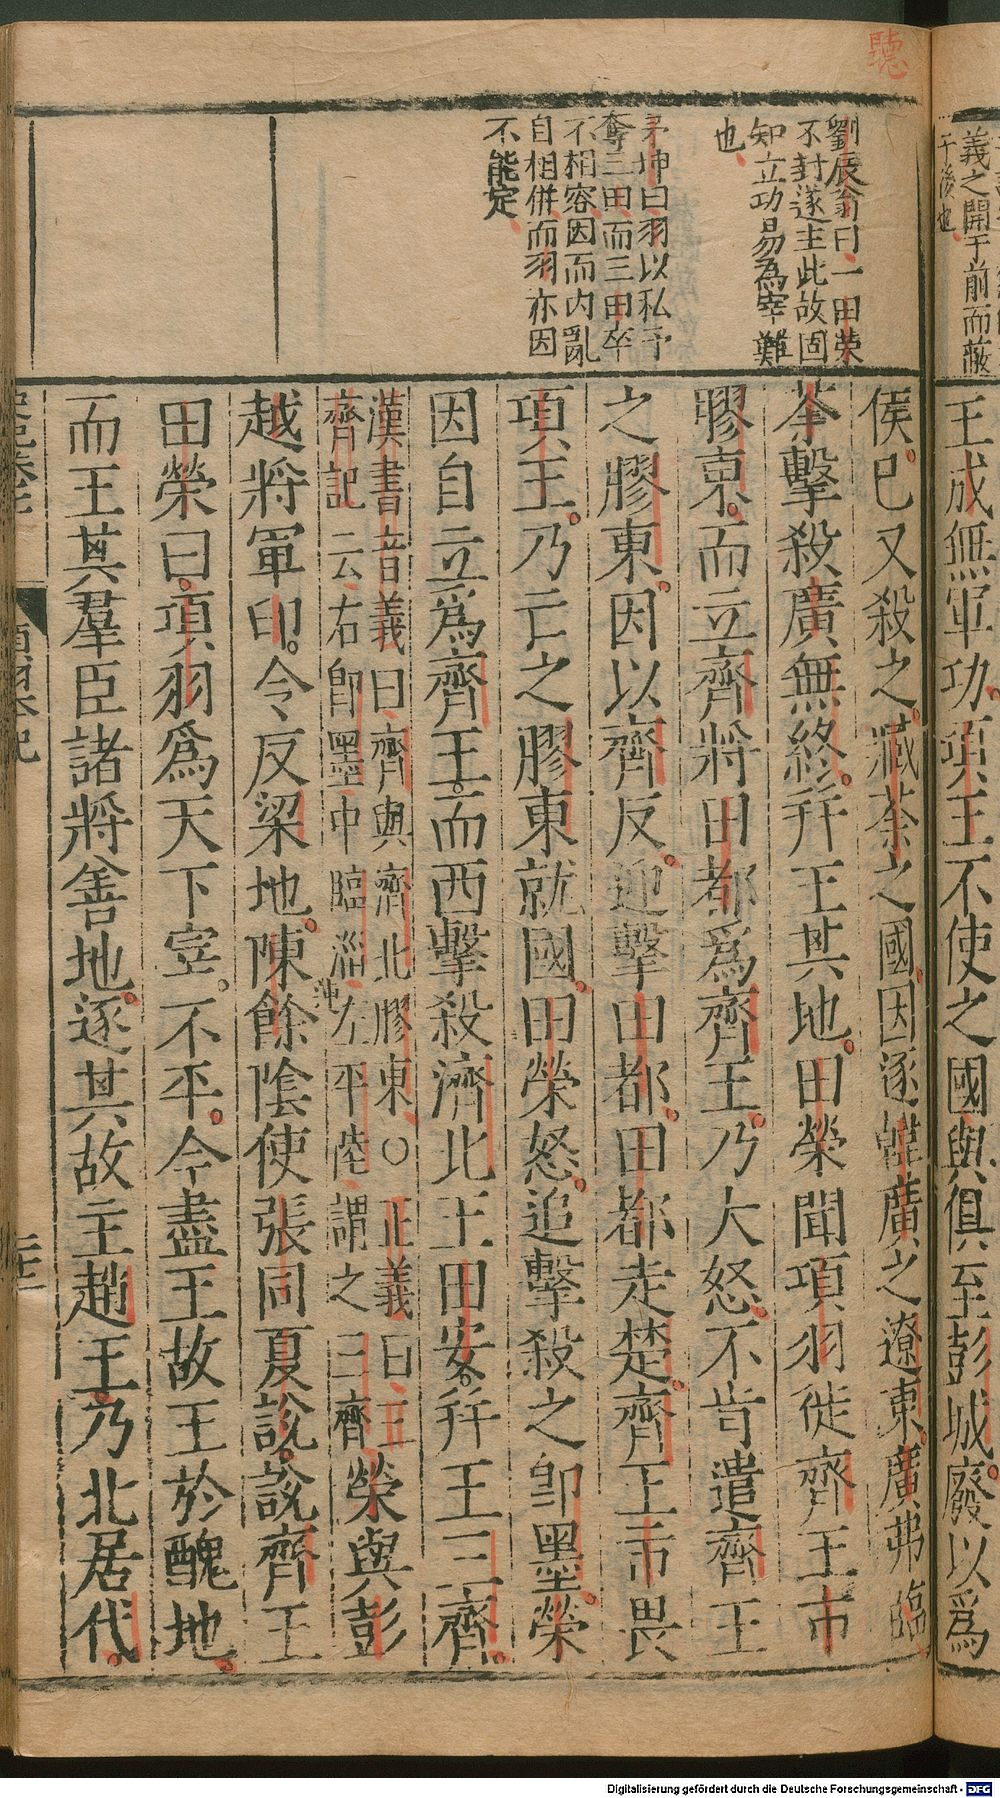 聽
義之開于前而蔽
于後也
王成無軍功項王不使之國與俱至彭城廢以爲
劉辰翁曰一田榮
不封遂主此故固
知立功易為宰難
也
茅坤曰羽以私予
奪三田而三田卒
不相容因而內亂
自相併而羽亦因
不能定
侯已又殺之臧荼之國因逐韓廣之遼東廣弗聽
荼擊殺廣無終并王其地田榮聞項羽徙齊王市
膠東而立齊將田都爲齊王乃大怒不肯遣齊王
之膠東因以齊反迎擊田都田都走楚齊王市畏
項王乃亡之膠東就國田榮怒追擊殺之卽墨榮
因自立爲齊王而西擊殺濟北王田安并王三齊
漢書音義曰齊與濟北膠東○正義曰三
齊記云右卽墨中臨淄左平陸謂之三齊榮與彭
越將軍印令反梁地陳餘陰使張同夏說說齊王
田榮曰項羽爲天下宰不平今盡王故王於醜地
而王其羣臣諸將善地逐其故主趙王乃北居代
史記卷七
項羽本紀
二十二
Digitalisierung gefördert durch die Deutsche Forschungsgemeinschaft - DFG